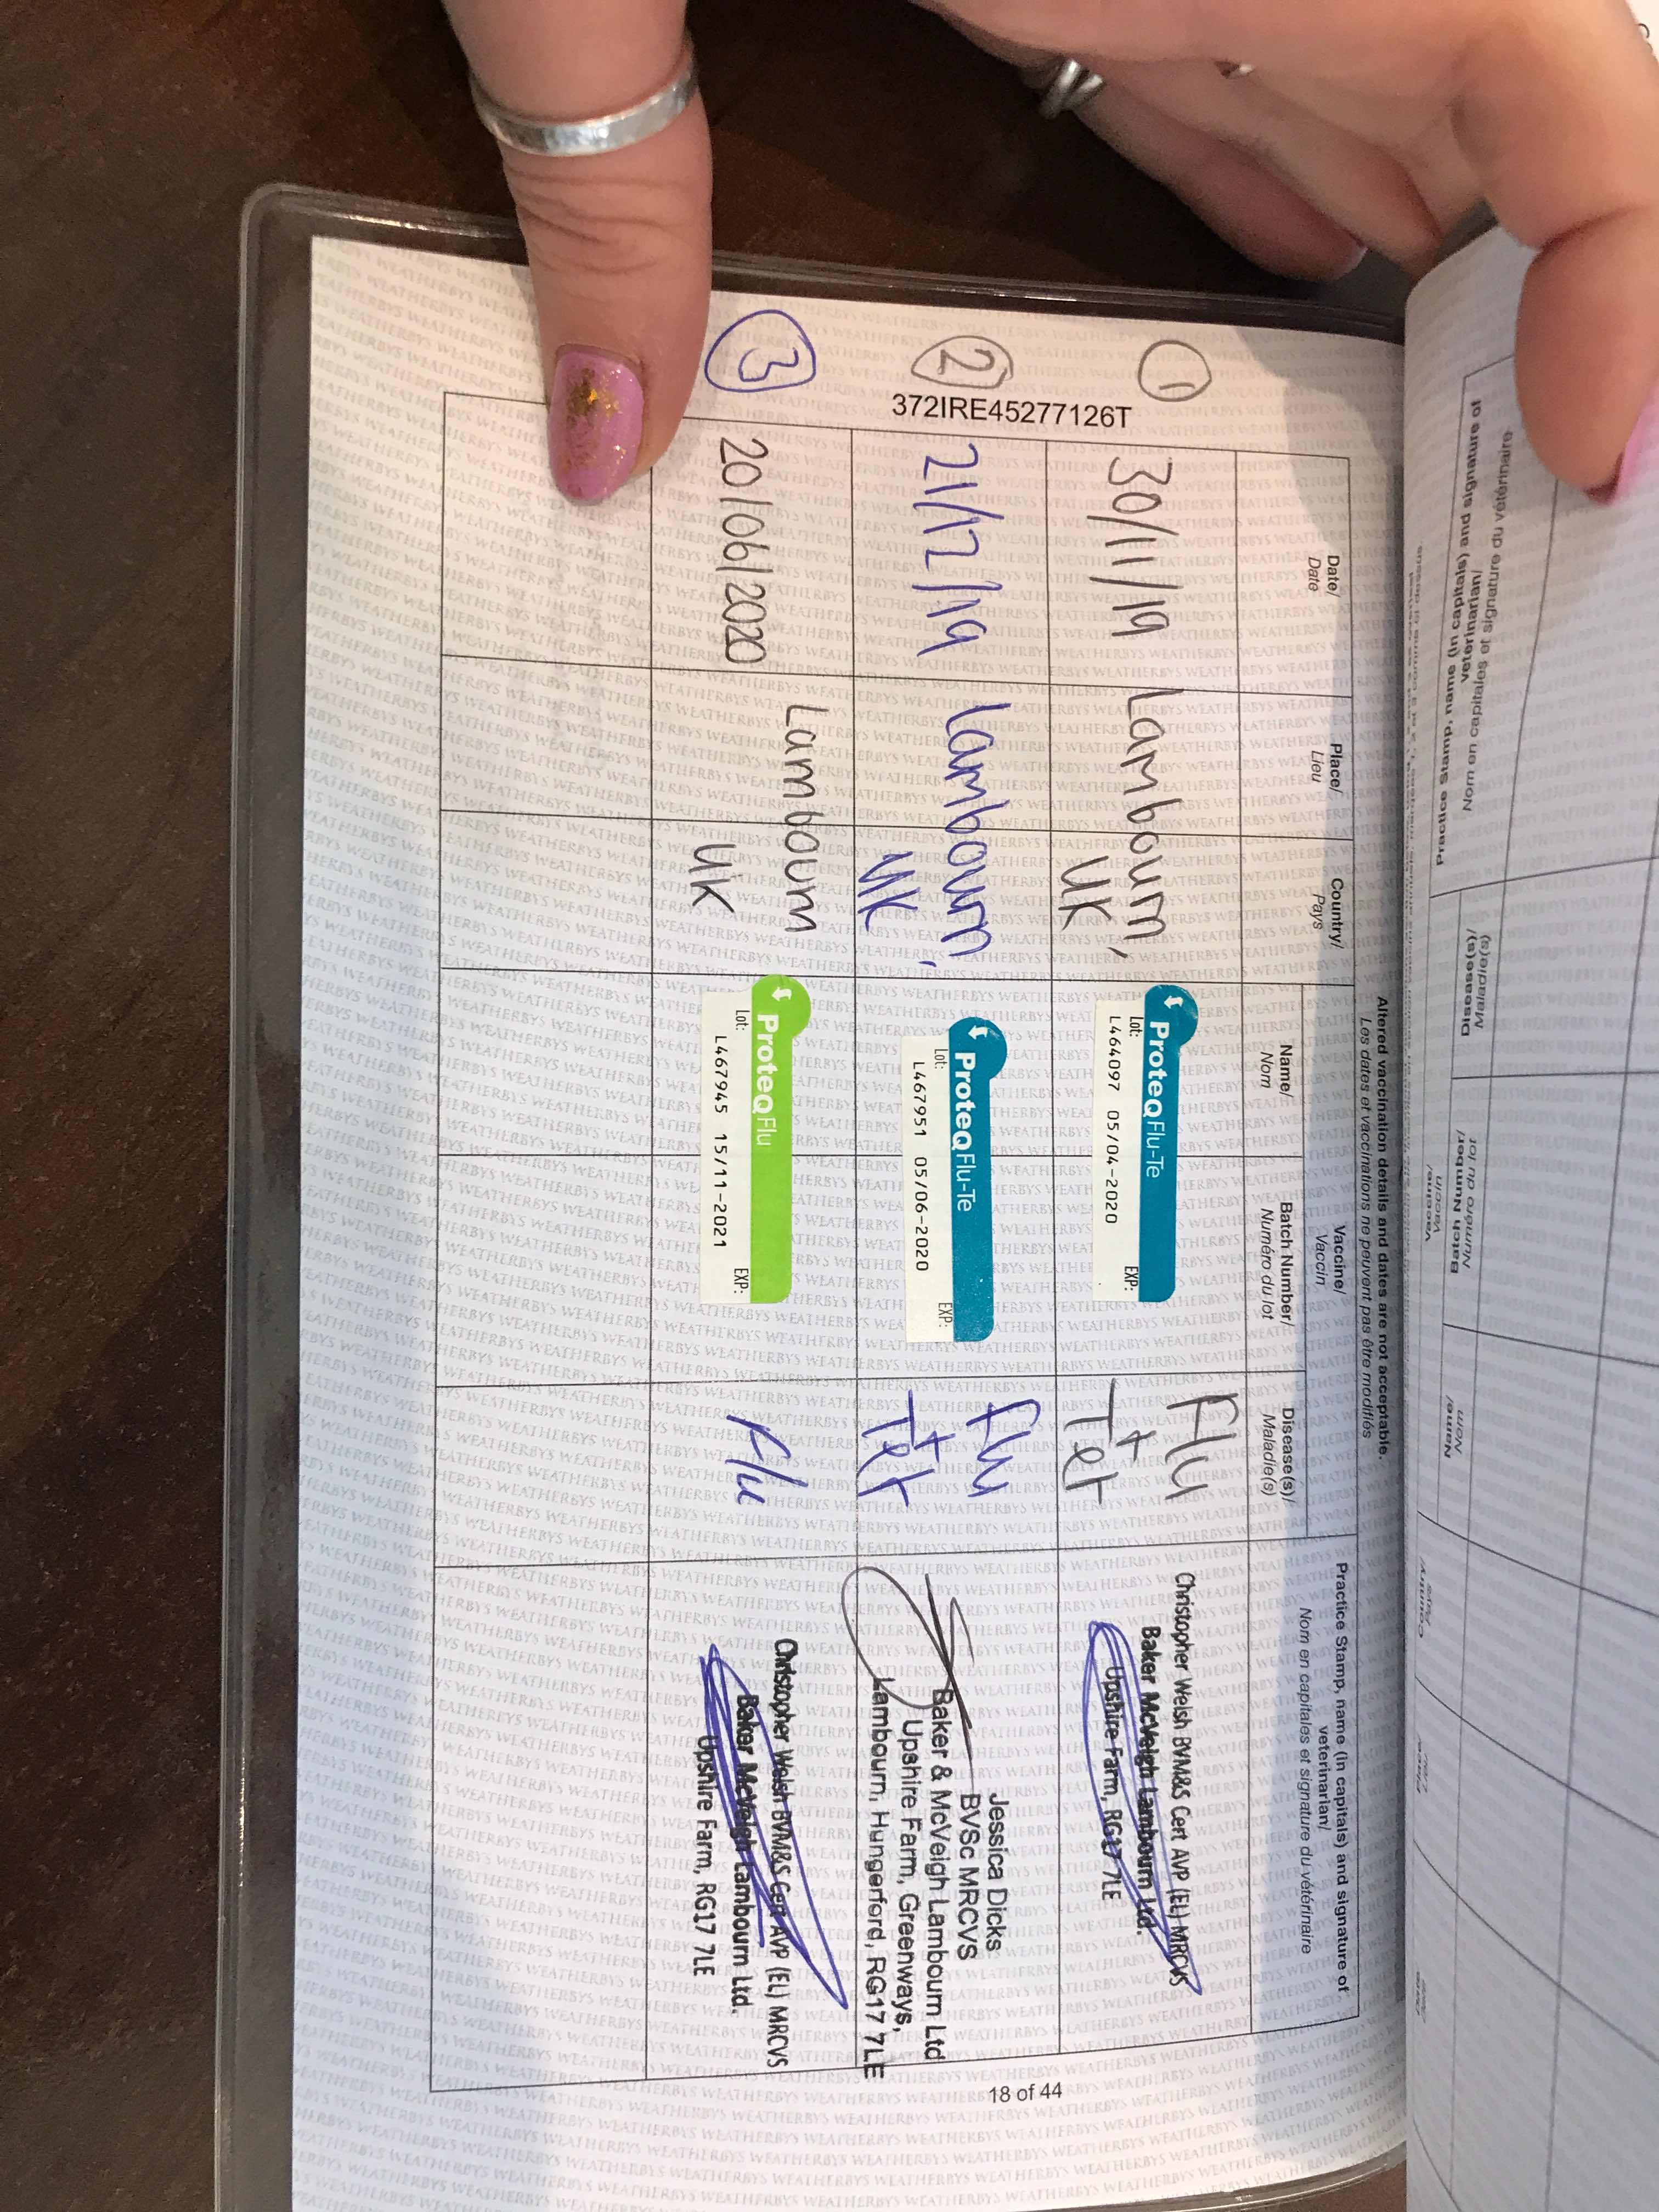 Practice Stamp, name (in capitals) and signature of
veterinarian/
Nom en capitales et signature du vétérinaire
Disease(s)/
Maladie(s)
Batch Number/
Numéro du lot
Name/
Nom
Vaccine/
Vaccin
Altered vaccination details and dates are not acceptable.
Les dates et vaccinations ne peuvent pas être modifiés
Date/
Date
Place/
Lieu
Country/
Pays
Vaccine/
Vaccin
Name/
Nom
Batch Number/
Numéro du lot
Disease(s)/
Maladie(s)
Practice Stamp, name (in capitals) and signature of
veterinarian/
Nom en capitales et signature du vétérinaire
372IRE45277126T
1
30/11/19
Lambourn,
UK
ProteqFlu-Te
Lot:
EXP:
L464097 05/04-2020
Flu
+
Tet
Christopher Welsh BVM&S Cert AVP (EL) MRCVS
Baker McVeigh Lambourn Ltd.
Upshire Farm, RG17 7LE
2
21/12/19
Lambourn,
UK
ProteqFlu-Te
Lot:
EXP:
L467951 05/06-2020
Flu
+
Tet
Jessica Dicks
BVSc MRCVS
Baker & McVeigh Lambourn Ltd
Upshire Farm, Greenways,
Lambourn, Hungerford, RG17 7LE
3
20/06/2020
Lambourn
UK
ProteqFlu
Lot:
EXP:
L467945 15/11-2021
Flu
Christopher Welsh BVM&S Cert AVP (EL) MRCVS
Baker McVeigh Lambourn Ltd.
Upshire Farm, RG17 7LE
18 of 44
WEATHERBYS